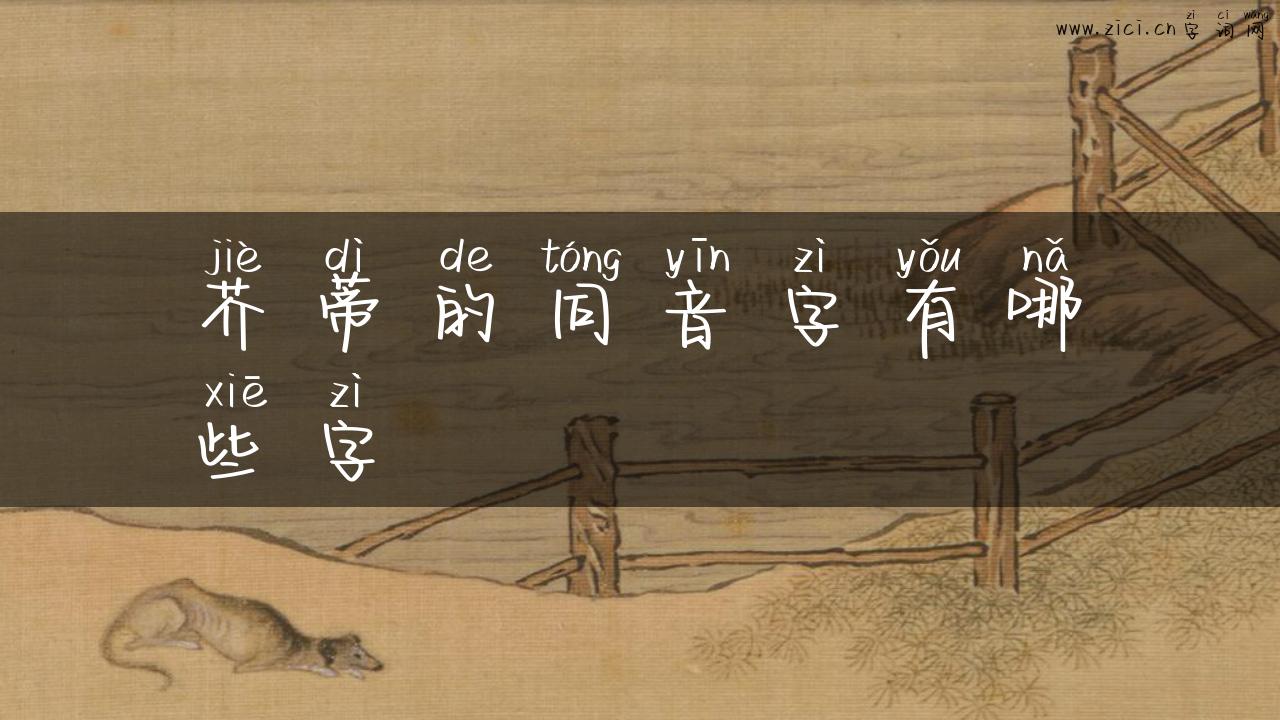 zì cí wǎng
www.zici.cn字词网
jiè dì de tóng yīn zì yǒu nǎ
芥蒂的同音字有哪
xiē zì
些字